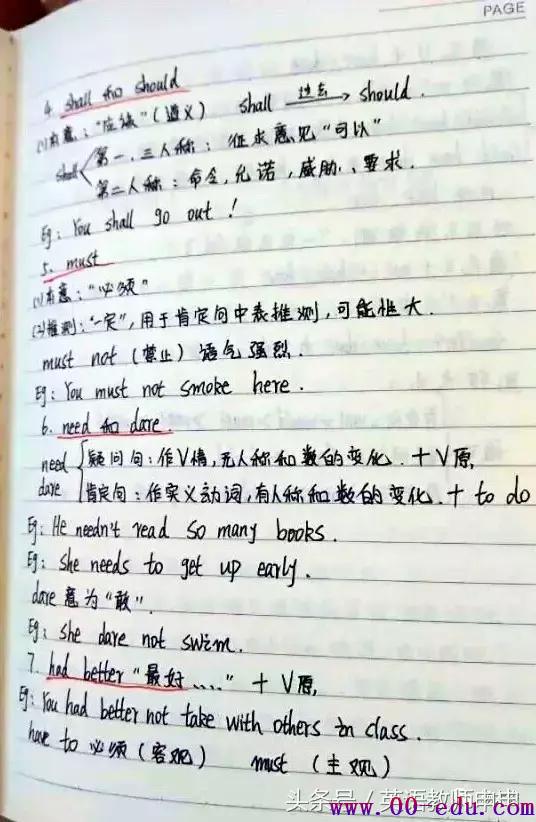 PAGE
4. shall 和 should
(1)本意："应该"(道义) shall 过去 should.
shall 第一、三人称：征求意见"可以"
第二人称：命令,允诺,威胁、要求.
Eg: You shall go out!
5. must
(1)本意："必须"
(2)推测："一定",用于肯定句中表推测,可能性大.
must not (禁止) 语气强烈.
Eg: You must not smoke here.
6. need 和 dare.
need 疑问句：作V情,无人称和数的变化.+V原,
dare 肯定句：作实义动词,有人称和数的变化.+ to do
Eg: He needn't read so many books.
Eg: She needs to get up early.
dare 意为"敢".
Eg: She dare not swim.
7. had better "最好...." + V原,
Eg: You had better not take with others in class.
have to 必须(客观) must (主观)
头条号/英语教师申申
www.00-edu.com